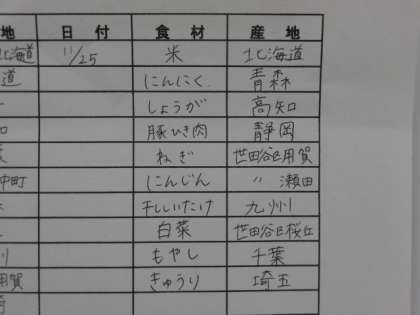 地 日付 食材 産地
北海道 11/25 米 北海道
道 にんにく 青森
しょうが 高知
豚ひき肉 静岡
ねぎ 世田谷区用賀
中町 にんじん 〃 瀬田
干しいたけ 九州
白菜 世田谷区桜丘
もやし 千葉
用賀 きゅうり 埼玉